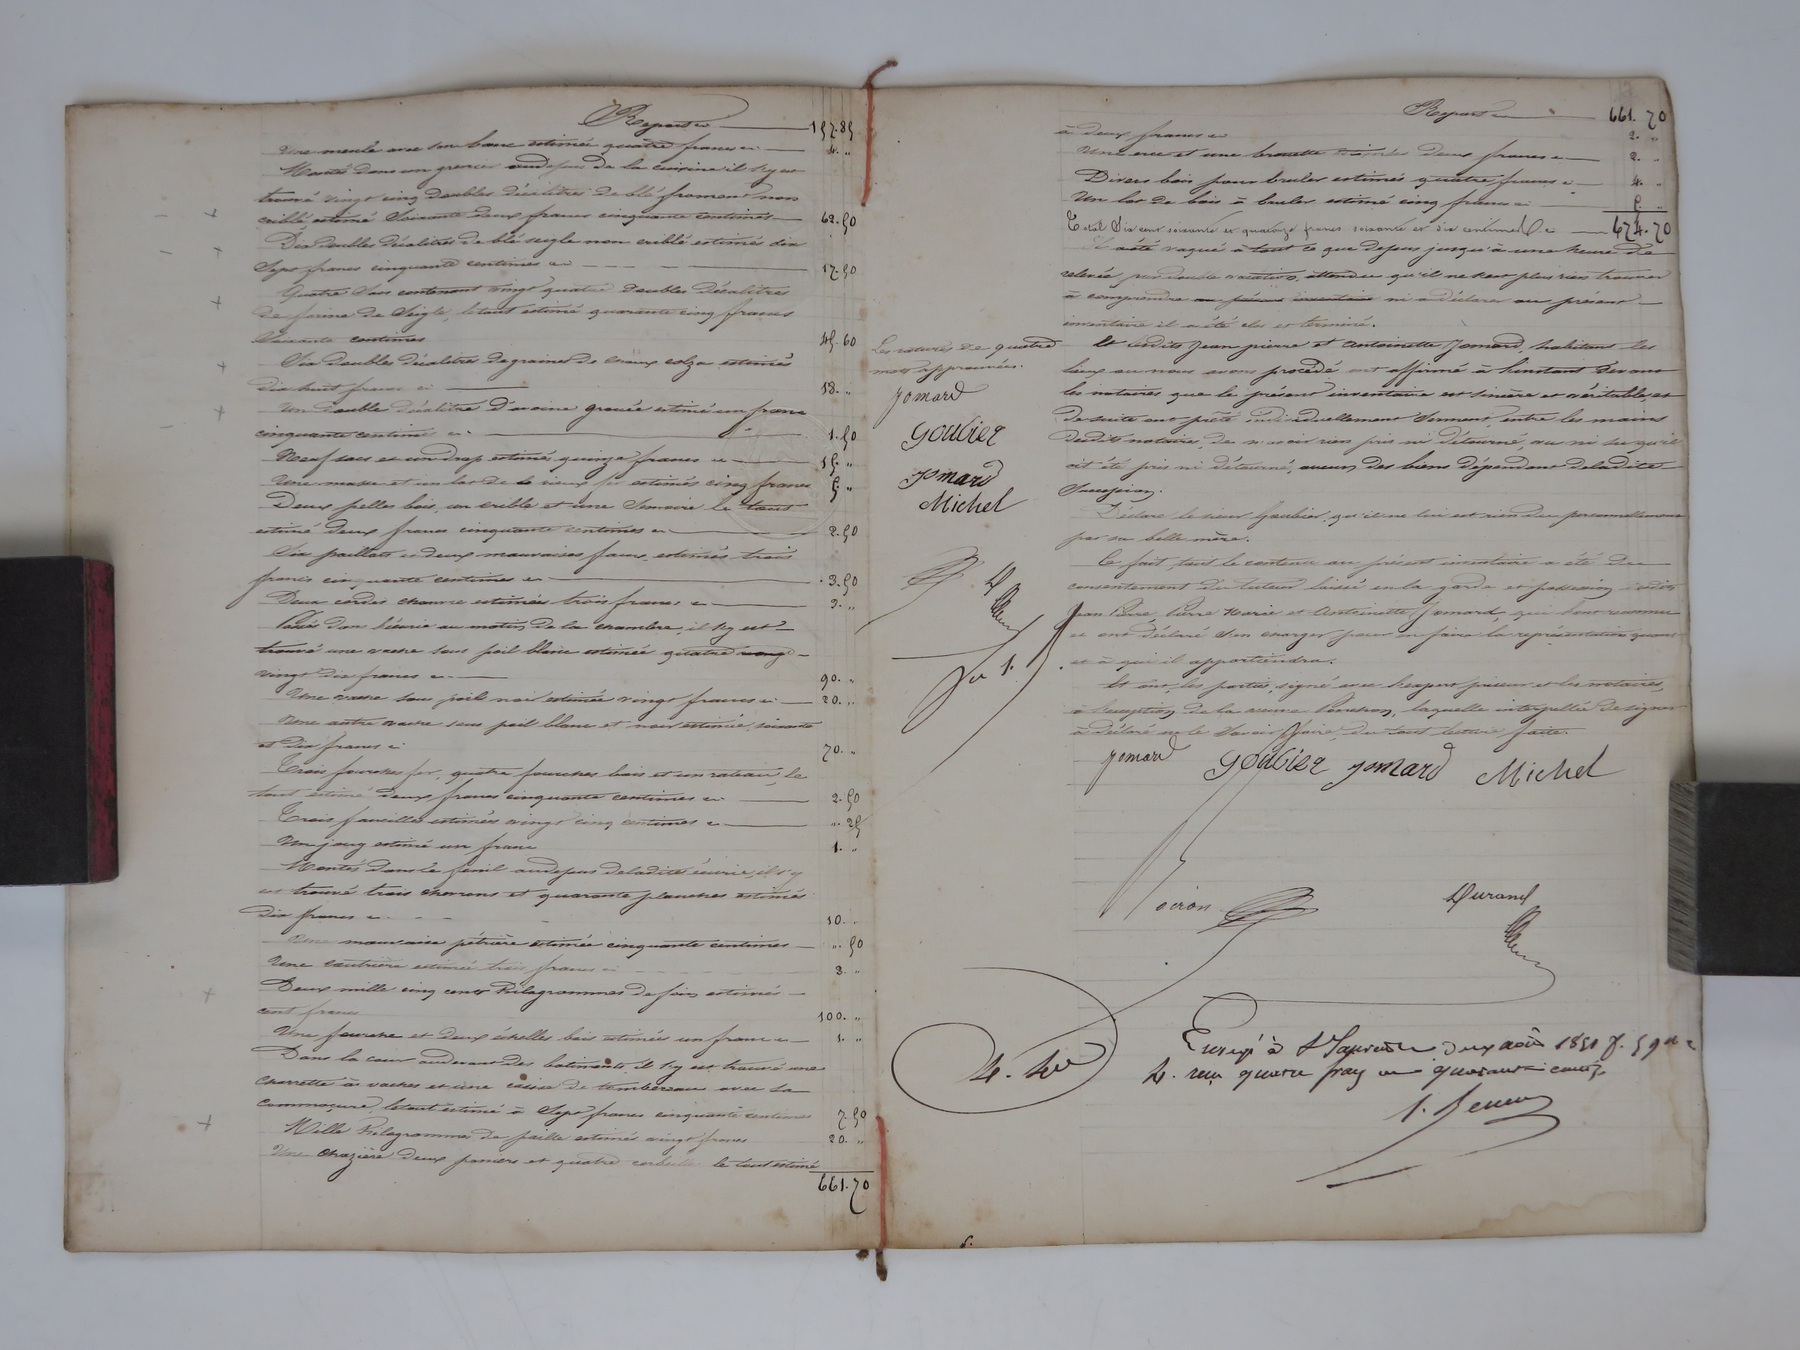 Report 157.85
Une meule avec son banc estimée quatre francs 4. "
Montés dans un grenier au dessus de la cuisine il s'y est
trouvé vingt cinq doubles décalitres de blé froment non
criblé estimé soixante deux francs cinquante centimes 62.50
Dix doubles décalitres de blé seigle non criblé estimés dix
sept francs cinquante centimes 17.50
Quatre sacs contenant vingt quatre doubles décalitres
de farine de seigle, le tout estimé quarante cinq francs
soixante centimes 45.60
Six doubles décalitres de graines de choux colza estimés
dix huit francs 18. "
Un double décalitre d'avoine gruée estimé un franc
cinquante centimes 1.50
Neuf sacs et un drap estimés quinze francs 15. "
Une masse et un lot de vieux fer estimés cinq francs 5. "
Deux pelles bois, un crible et une semoire le tout
estimé deux francs cinquante centimes 2.50
Six paillats et deux mauvaises faux estimés trois
francs cinquante centimes 3.50
Deux cordes chanvre estimées trois francs 3. "
Passés dans l'écurie au matin de la chambre, il s'y est
trouvé une vache sous poil blanc estimée quatre
vingt dix francs 90. "
Une vache sous poil noir estimée vingt francs 20. "
Une autre vache sous poil blanc et noir estimée soixante
et dix francs 70. "
Trois fourches fer, quatre fourches bois et un rateau, le
tout estimé deux francs cinquante centimes 2.50
Trois faucilles estimées vingt cinq centimes ". 25
Un joug estimé un franc 1. "
Montés dans le fenil au dessus de ladite écurie, il s'y
est trouvé trois chevrons et quarante planches estimés
dix francs 10. "
Une mauvaise pétrière estimée cinquante centimes ". 50
Une estimée trois francs 3. "
Deux mille cinq cents kilogrammes de foin estimés
cent francs 100. "
Une fourche et deux échelles bois estimées un franc 1. "
Dans la cour au devant des batiments, il s'y est trouvé une
charrette à vaches et une caisse de tombereau avec sa
le tout estimé à sept francs cinquante centimes 7.50
Mille kilogrammes de paille estimés vingt francs 20. "
Une deux paniers et quatre corbeilles le tout estimé
661.70
Report 661.70
à deux francs 2. "
Une et une brouette estimées deux francs 2. "
Divers bois pour bruler estimés quatre francs 4. "
Un lot de bois à bruler estimé cinq francs 5. "
Total Six cent soixante et quatorze francs soixante et dix centimes 674.70
Il a été vaqué à tout ce que dessus jusqu'à une heure de
relevée par double vacation, attendu qu'il ne s'est plus rien trouvé
à comprendre au présent inventaire ni à déclarer au présent
inventaire il a été clos et terminé.
Et lesdits Jean pierre et Antoinette Jomard, habitant les
lieux où nous avons procédé ont affirmé à l'instant devant
les notaires que le présent inventaire est sincère et véritable, et
de suite ont prêté individuellement serment, entre les mains
desdits notaires, de n'avoir rien pris ni détourné, vu ni su qu'il
ait été pris ni détourné, aucun des biens dépendant de ladite
succession.
Déclare le sieur Goubier qu'il ne lui est rien dû personnellement
par sa belle mère.
Ce fait, tout le contenu au présent inventaire a été du
consentement du tuteur laissé en la garde et possession desdits
Jean Pierre, Pierre Marie et Antoinette Jomard, qui l'ont reconnu
et ont déclaré s'en charger pour en faire la représentation quand
et à qui il appartiendra.
Et ont, les parties, signé avec l'expert priseur et les notaires,
à l'exception de la veuve laquelle interpellée de signer
a déclaré ne le savoir faire, du tout lecture faite.
Jomard Goubier Jomard Michel
Voiron Durand
Les ratures de quatre
mots approuvées.
Jomard
Goubier
Jomard
Michel
D
Enregé à St deux août 1851 f. 59
4. reçu quatre francs quarante cent.